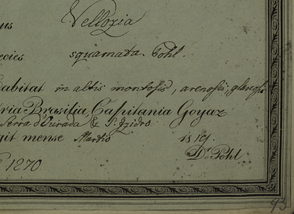 us Vellozia
ecies squamata. Pohl.
abitat in altis montosis, arenosis,
ria: Brasilia Capitania Goyaz
Serra d'Ourada & S. Izidro
git mense Martio 18
Dr Pohl
1270